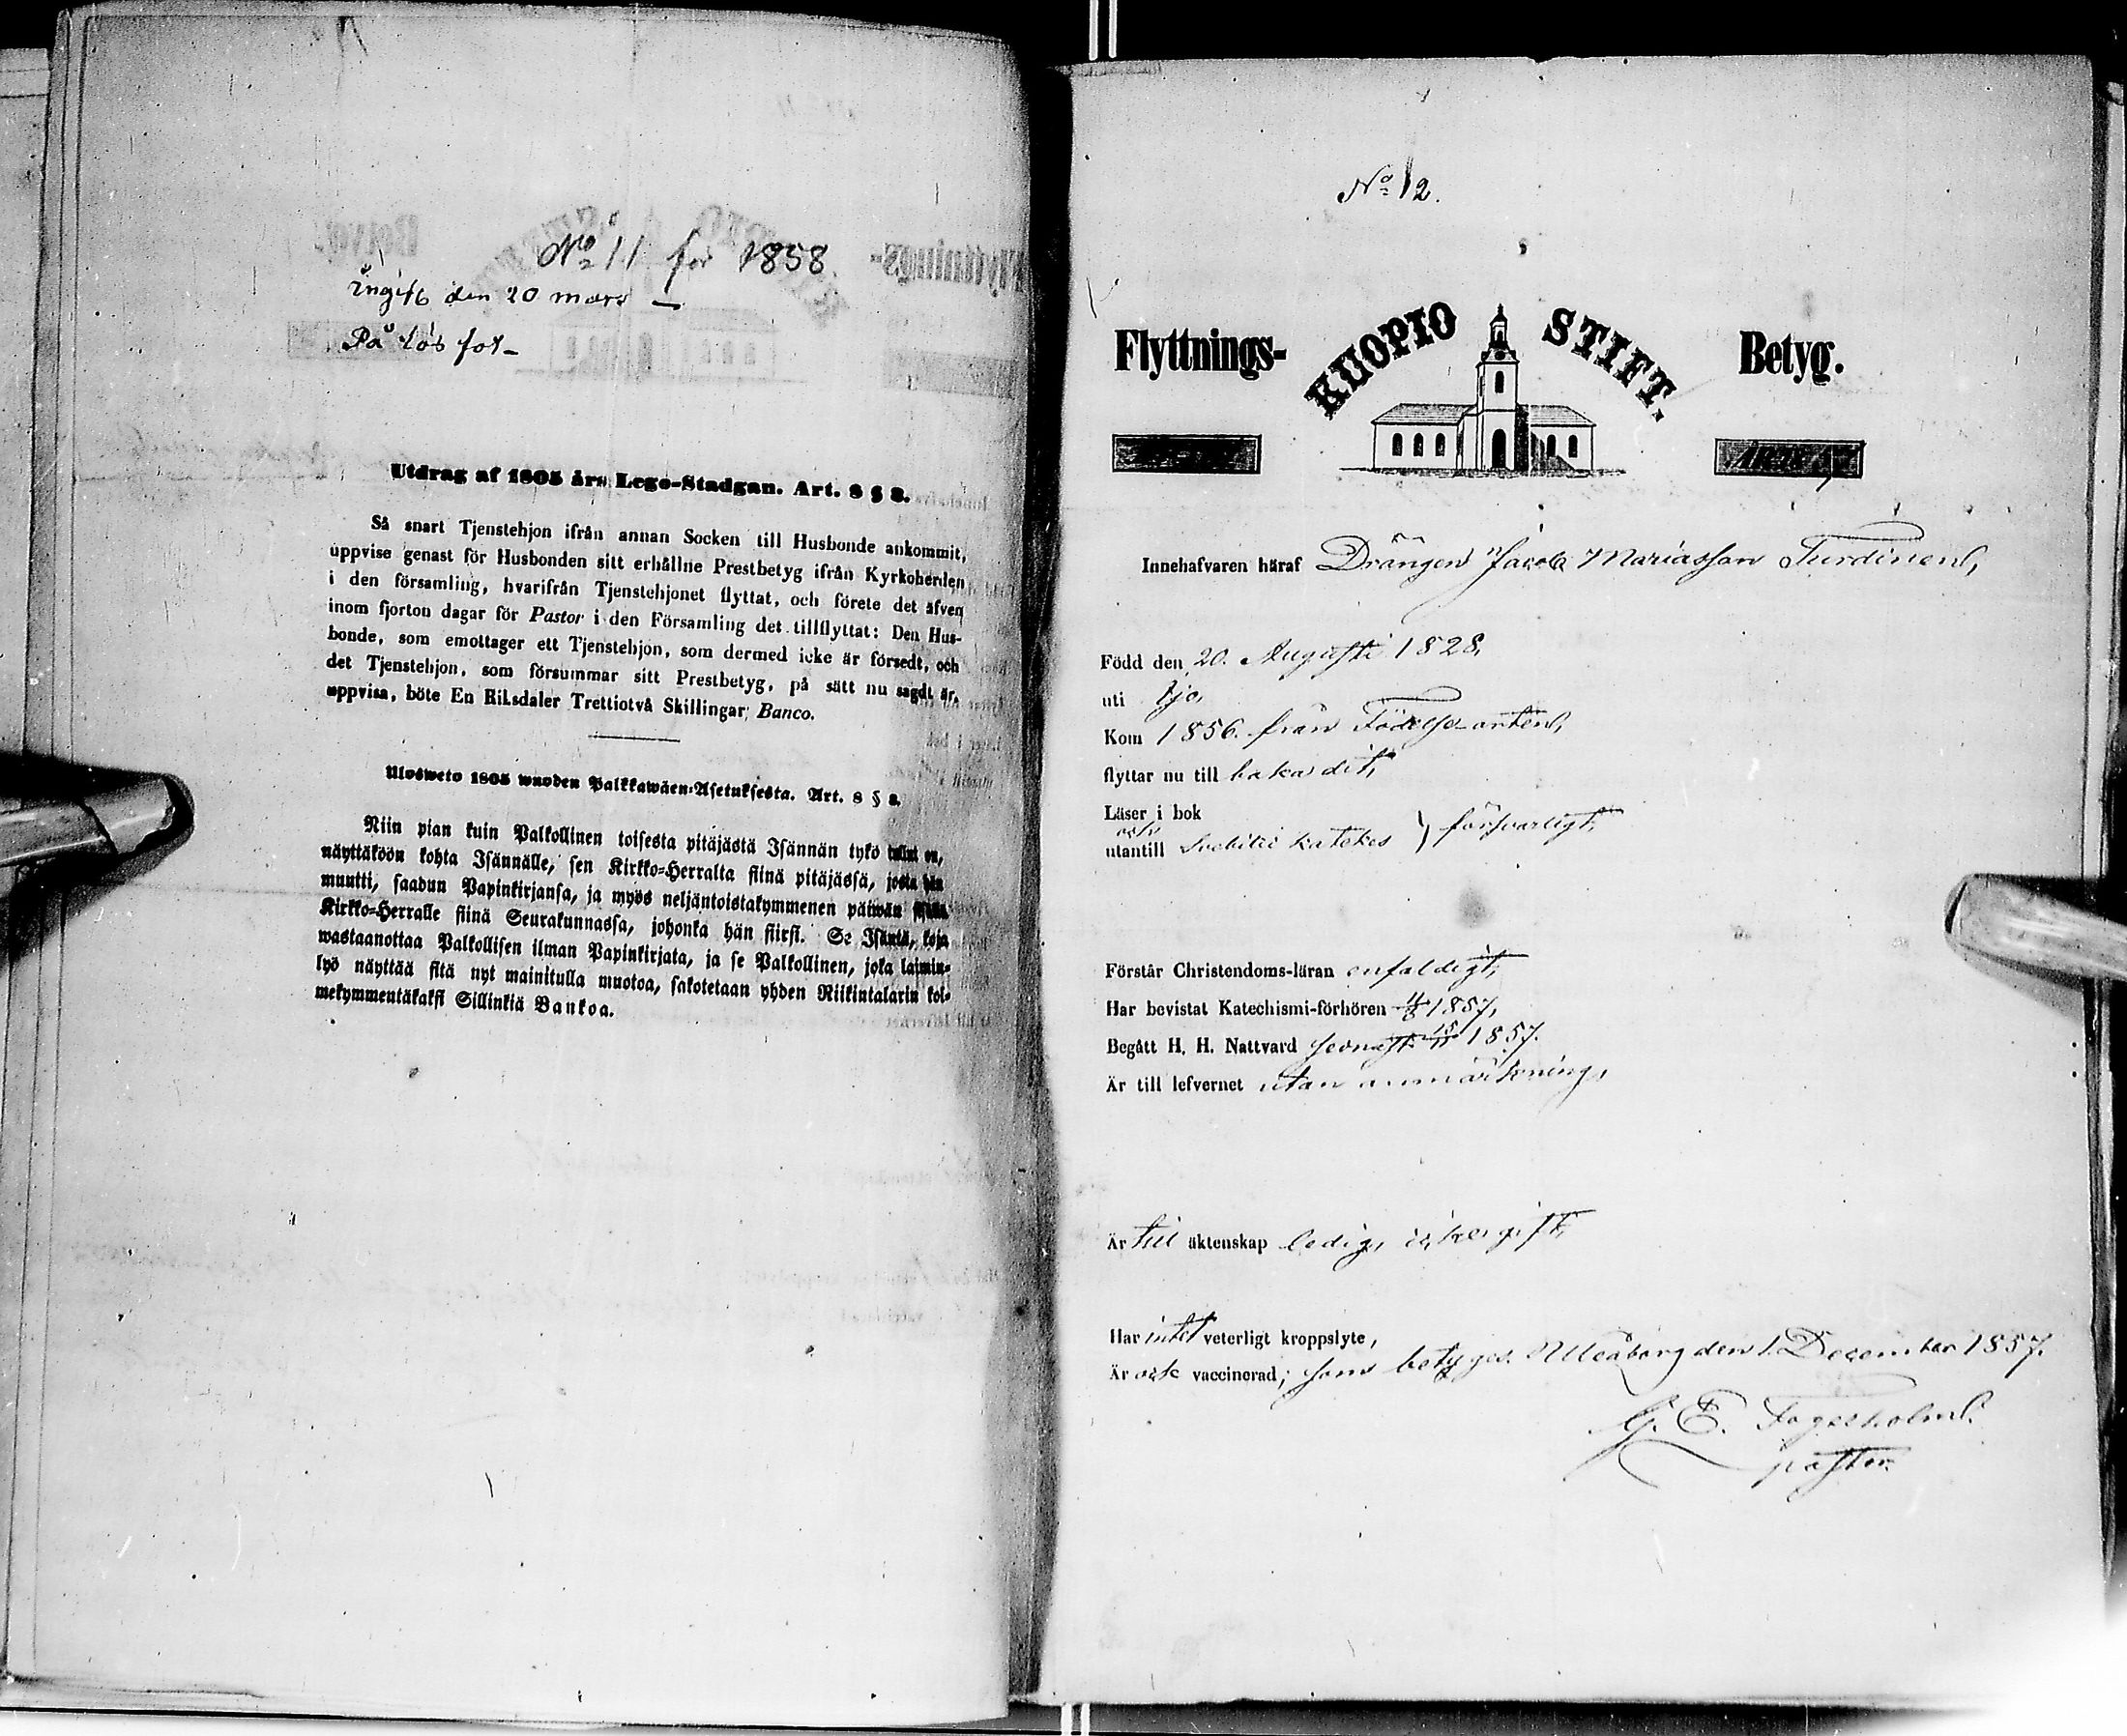 No 11 för 1858.
Ingift den 20 mars —
På lös fot —
Utdrag af 1805 års Lego-Stadgan. Art. 8 § 8.
Så snart Tjenstehjon ifrån annan Socken till Husbonde ankommit,
uppvise genast för Husbonden sitt erhållne Prestbetyg ifrån Kyrkoherden
i den församling, hvarifrån Tjenstehjonet flyttat, och förete det äfven
inom fjorton dagar för Pastor i den Församling det tillflyttat: Den Hus-
bonde, som emottager ett Tjenstehjon, som dermed icke är försedt, och
det Tjenstehjon, som försummar sitt Prestbetyg, på sätt nu sagdt är,
uppvisa, böte En Riksdaler Trettiotvå Skillingar Banco.
Ulosweto 1805 wuoden Palkkawäen-Asetuksesta. Art. 8 § 8.
Niin pian kuin Palkollinen toisesta pitäjästä Isännän tykö tullut on,
näyttäköön kohta Isännälle, sen Kirkko-Herralta siinä pitäjässä, josta hän
muutti, saadun Papinkirjansa, ja myös neljäntoistakymmenen päiwän
Kirkko-Herralle siinä Seurakunnassa, johonka hän siirsi. Se Isäntä, koja
wastaanottaa Palkollisen ilman Papinkirjata, ja se Palkollinen, joka laimin-
lyö näyttää sitä nyt mainitulla muotoa, sakotetaan yhden Riikintalarin kol-
mekymmentäkaksi Sillinkiä Bankoa.
No 12.
Flyttnings- KUOPIO STIFT. Betyg.
Innehafvaren häraf Drängen Jacob Mariasson Turdinen,
Född den 20. Augusti 1828.
uti Ijo,
Kom 1856. från Födelse-orten,
flyttar nu till baka dit,
Läser i bok
och
utantill Svebilii katekes } försvarligt,
Förstår Christendoms-läran enfaldigt,
Har bevistat Katechismi-förhören 1857,
Begått H. H. Nattvard senast 1857.
Är till lefvernet utan anmärkning,
Är till äktenskap ledig, icke gift,
Har intet veterligt kroppslyte,
Är ock vaccinerad; som betygas. Uleåborg den 1. December 1857.
G. E. Fogelholm
pastor.